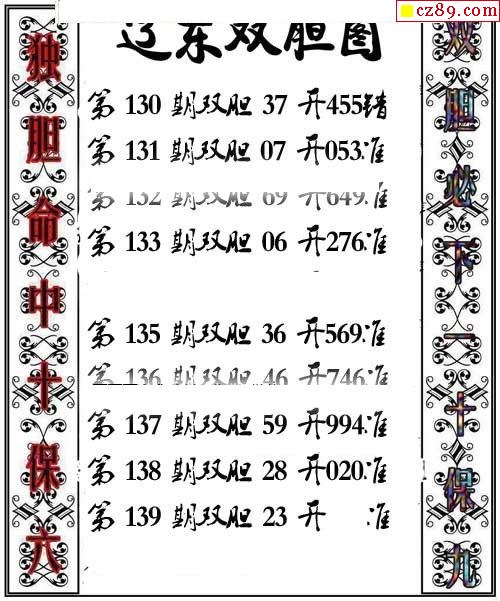 cz89.com
辽东双胆图
独胆命中十保六
双胆必下一十保九
第 130 期双胆 37 开455错
第 131 期双胆 07 开053准
第 132 期双胆 69 开649准
第 133 期双胆 06 开276准
第 135 期双胆 36 开569准
第 136 期双胆 46 开746准
第 137 期双胆 59 开994准
第 138 期双胆 28 开020准
第 139 期双胆 23 开 准